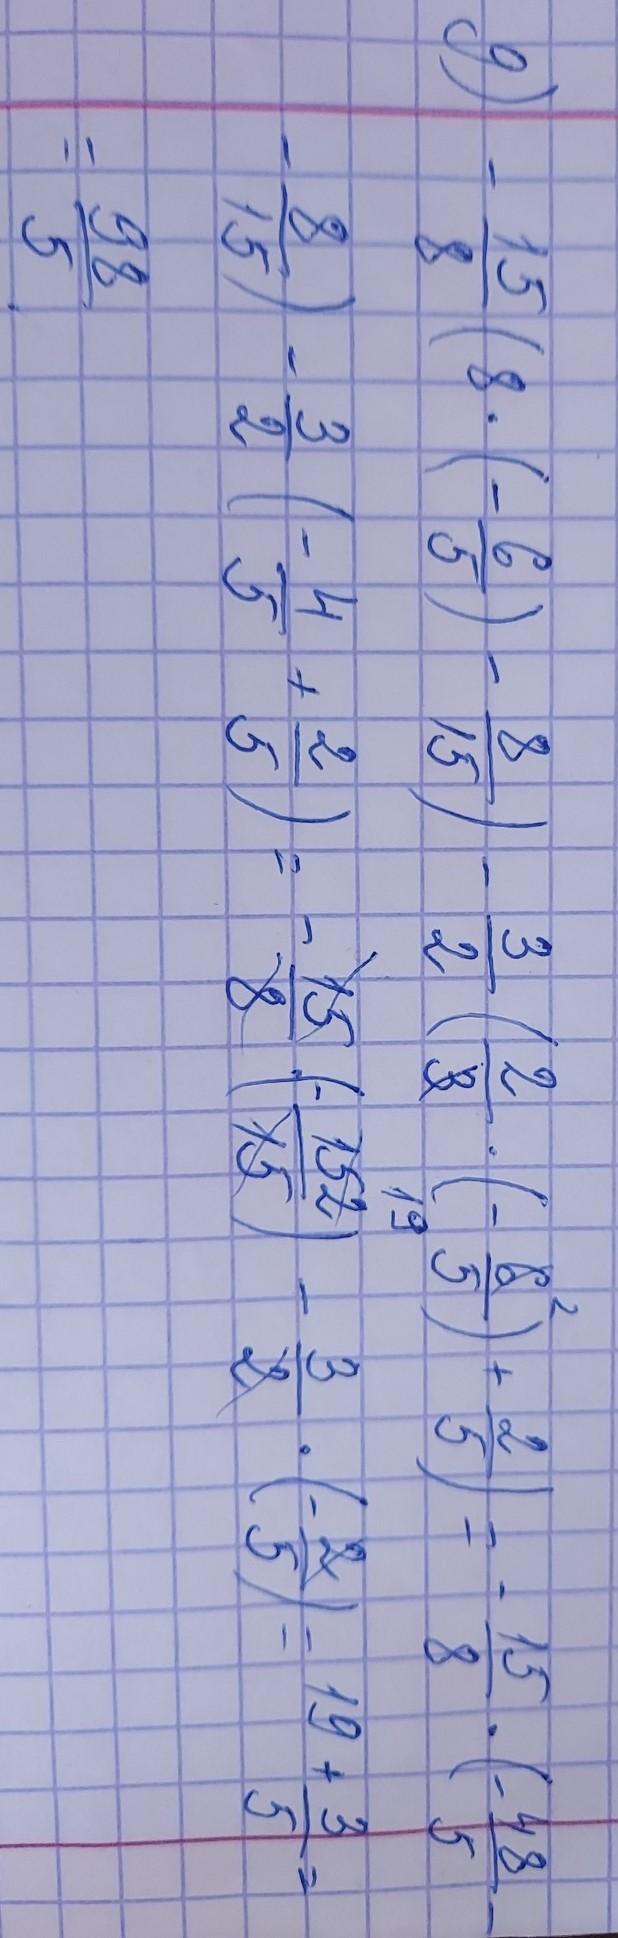 g) - 15/8 (8 · (- 6/5) - 8/15) - 3/2 (2/3 · (- 6/5)² + 2/5) = - 15/8 · (- 48/5 -
- 8/15) - 3/2 (- 4/5 + 2/5) = - 15/8 · (- 152/15)¹⁹ - 3/2 · (- 2/5) = 19 + 3/5 =
= 98/5.